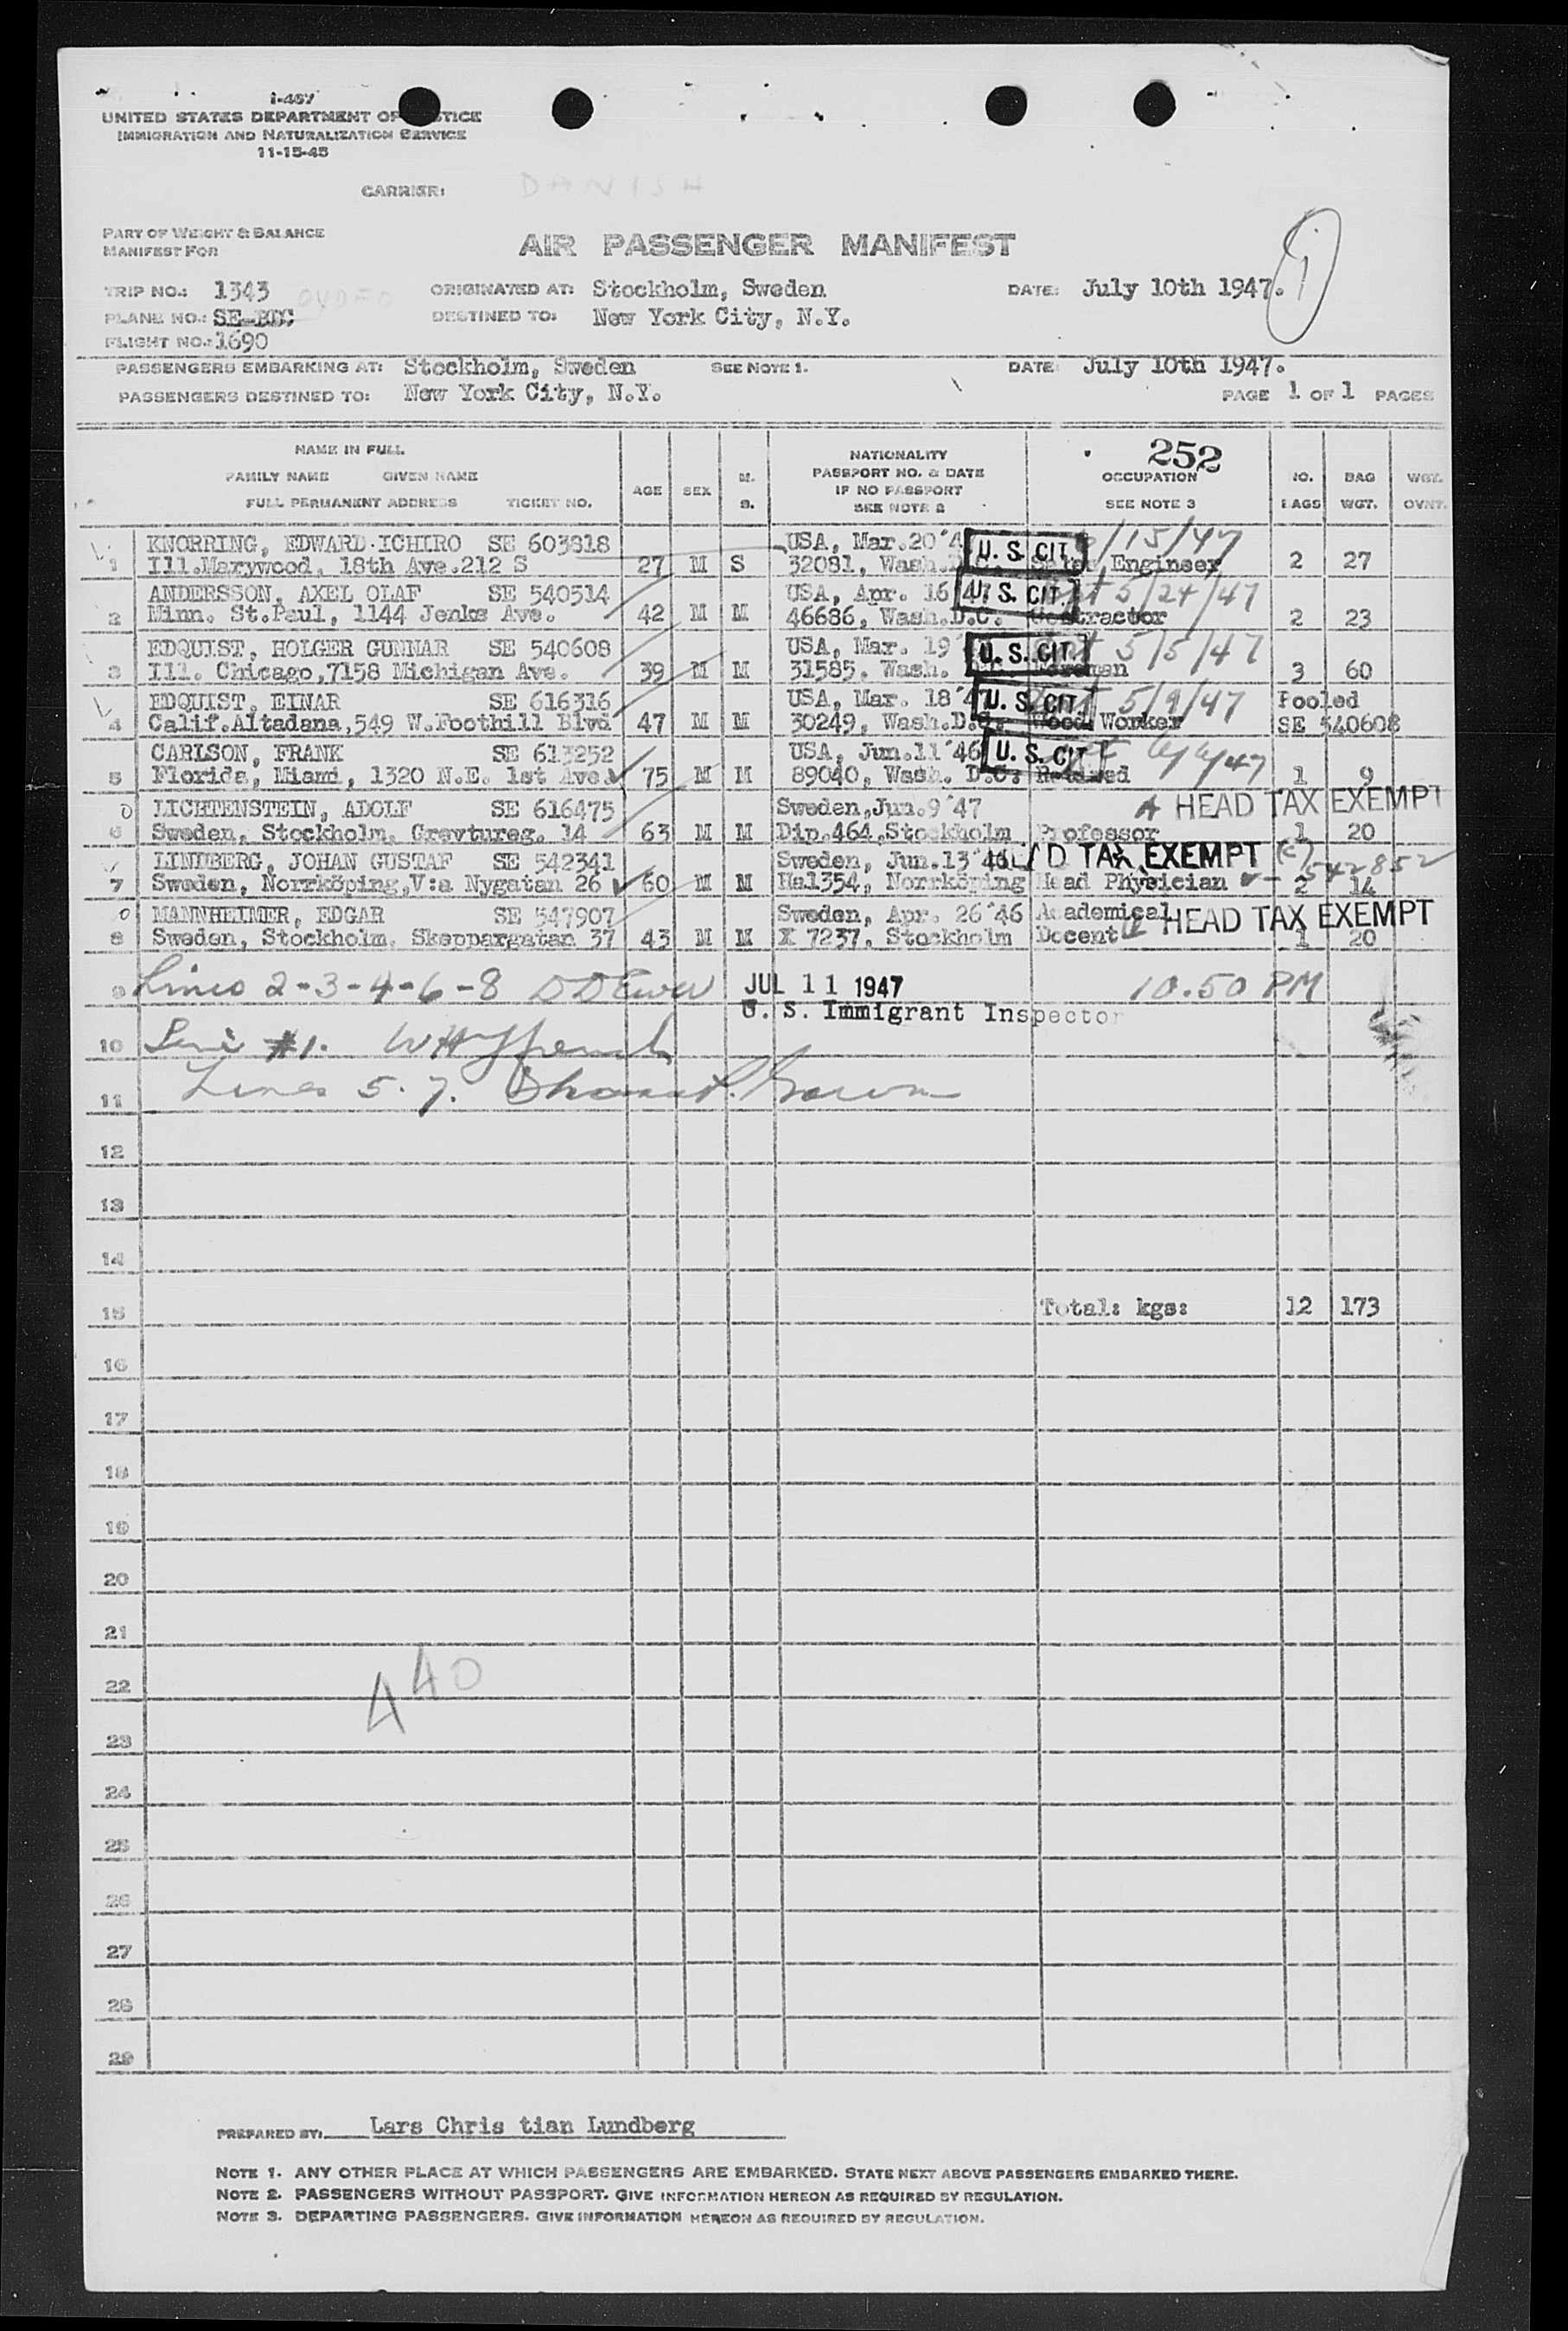 I-467
UNITED STATES DEPARTMENT OF JUSTICE
IMMIGRATION AND NATURALIZATION SERVICE
11-15-45
CARRIER: DANISH
PART OF WEIGHT & BALANCE
MANIFEST FOR
AIR PASSENGER MANIFEST
TRIP NO.: 1343 ORIGINATED AT: Stockholm, Sweden DATE: July 10th 1947.
PLANE NO.: DESTINED TO: New York City, N.Y.
FLIGHT NO.: 1690
PASSENGERS EMBARKING AT: Stockholm, Sweden SEE NOTE 1. DATE: July 10th 1947.
PASSENGERS DESTINED TO: New York City, N.Y. PAGE 1 OF 1 PAGES
252
NAME IN FULL
FAMILY NAME GIVEN NAME
FULL PERMANENT ADDRESS TICKET NO.
AGE SEX M. S.
NATIONALITY
PASSPORT NO. & DATE
IF NO PASSPORT
SEE NOTE 2
OCCUPATION
SEE NOTE 3
NO. BAGS
BAG WGT.
WGT. OVNT.
KNORRING, EDWARD ICHIRO SE 603818 USA, Mar.20'4 U. S. CIT. /15/47
1 Ill.Marywood, 18th Ave.212 S 27 M S 32081, Wash. Engineer 2 27
ANDERSSON, AXEL OLAF SE 540514 USA, Apr. 16 '47 U. S. CIT. 5/24/47
2 Minn. St.Paul, 1144 Jenks Ave. 42 M M 46686, Wash.D.C. Contractor 2 23
EDQUIST, HOLGER GUNNAR SE 540608 USA, Mar. 19 U. S. CIT. 5/5/47
3 Ill. Chicago,7158 Michigan Ave. 39 M M 31585. Wash. 3 60
EDQUIST, EINAR SE 616316 USA, Mar. 18'47 U. S. CIT. 5/9/47 Pooled
4 Calif.Altadana,549 W.Foothill Blvd 47 M M 30249, Wash.D.C. Wood Worker SE 540608
CARLSON, FRANK SE 613252 USA, Jun.11'46 U. S. CIT 6/6/47
5 Florida, Miami, 1320 N.E. 1st Ave. 75 M M 89040, Wash. D.C. Retired 1 9
LICHTENSTEIN, ADOLF SE 616475 Sweden,Jun.9'47 HEAD TAX EXEMPT
6 Sweden, Stockholm, Grevtureg. 14 63 M M Dip.464,Stockholm Professor 1 20
LINDBERG, JOHAN GUSTAF SE 542341 Sweden, Jun.13'46 HEAD TAX EXEMPT (c)
7 Sweden, Norrköping,V:a Nygatan 26 60 M M Hal354, Norrköping Head Physician V-542852 2 14
MANNHEIMER, EDGAR SE 547907 Sweden, Apr. 26'46 Academical HEAD TAX EXEMPT
8 Sweden, Stockholm, Skeppargatan 37 43 M M X 7237, Stockholm Docent 1 20
9 Lines 2-3-4-6-8 JUL 11 1947 10.50 PM
U. S. Immigrant Inspector
10 Line #1.
11 Lines 5. 7.
12
13
14
15 Total: kgs: 12 173
16
17
18
19
20
21
22 A 40
23
24
25
26
27
28
29
PREPARED BY: Lars Chris tian Lundberg
NOTE 1. ANY OTHER PLACE AT WHICH PASSENGERS ARE EMBARKED. STATE NEXT ABOVE PASSENGERS EMBARKED THERE.
NOTE 2. PASSENGERS WITHOUT PASSPORT. GIVE INFORMATION HEREON AS REQUIRED BY REGULATION.
NOTE 3. DEPARTING PASSENGERS. GIVE INFORMATION HEREON AS REQUIRED BY REGULATION.